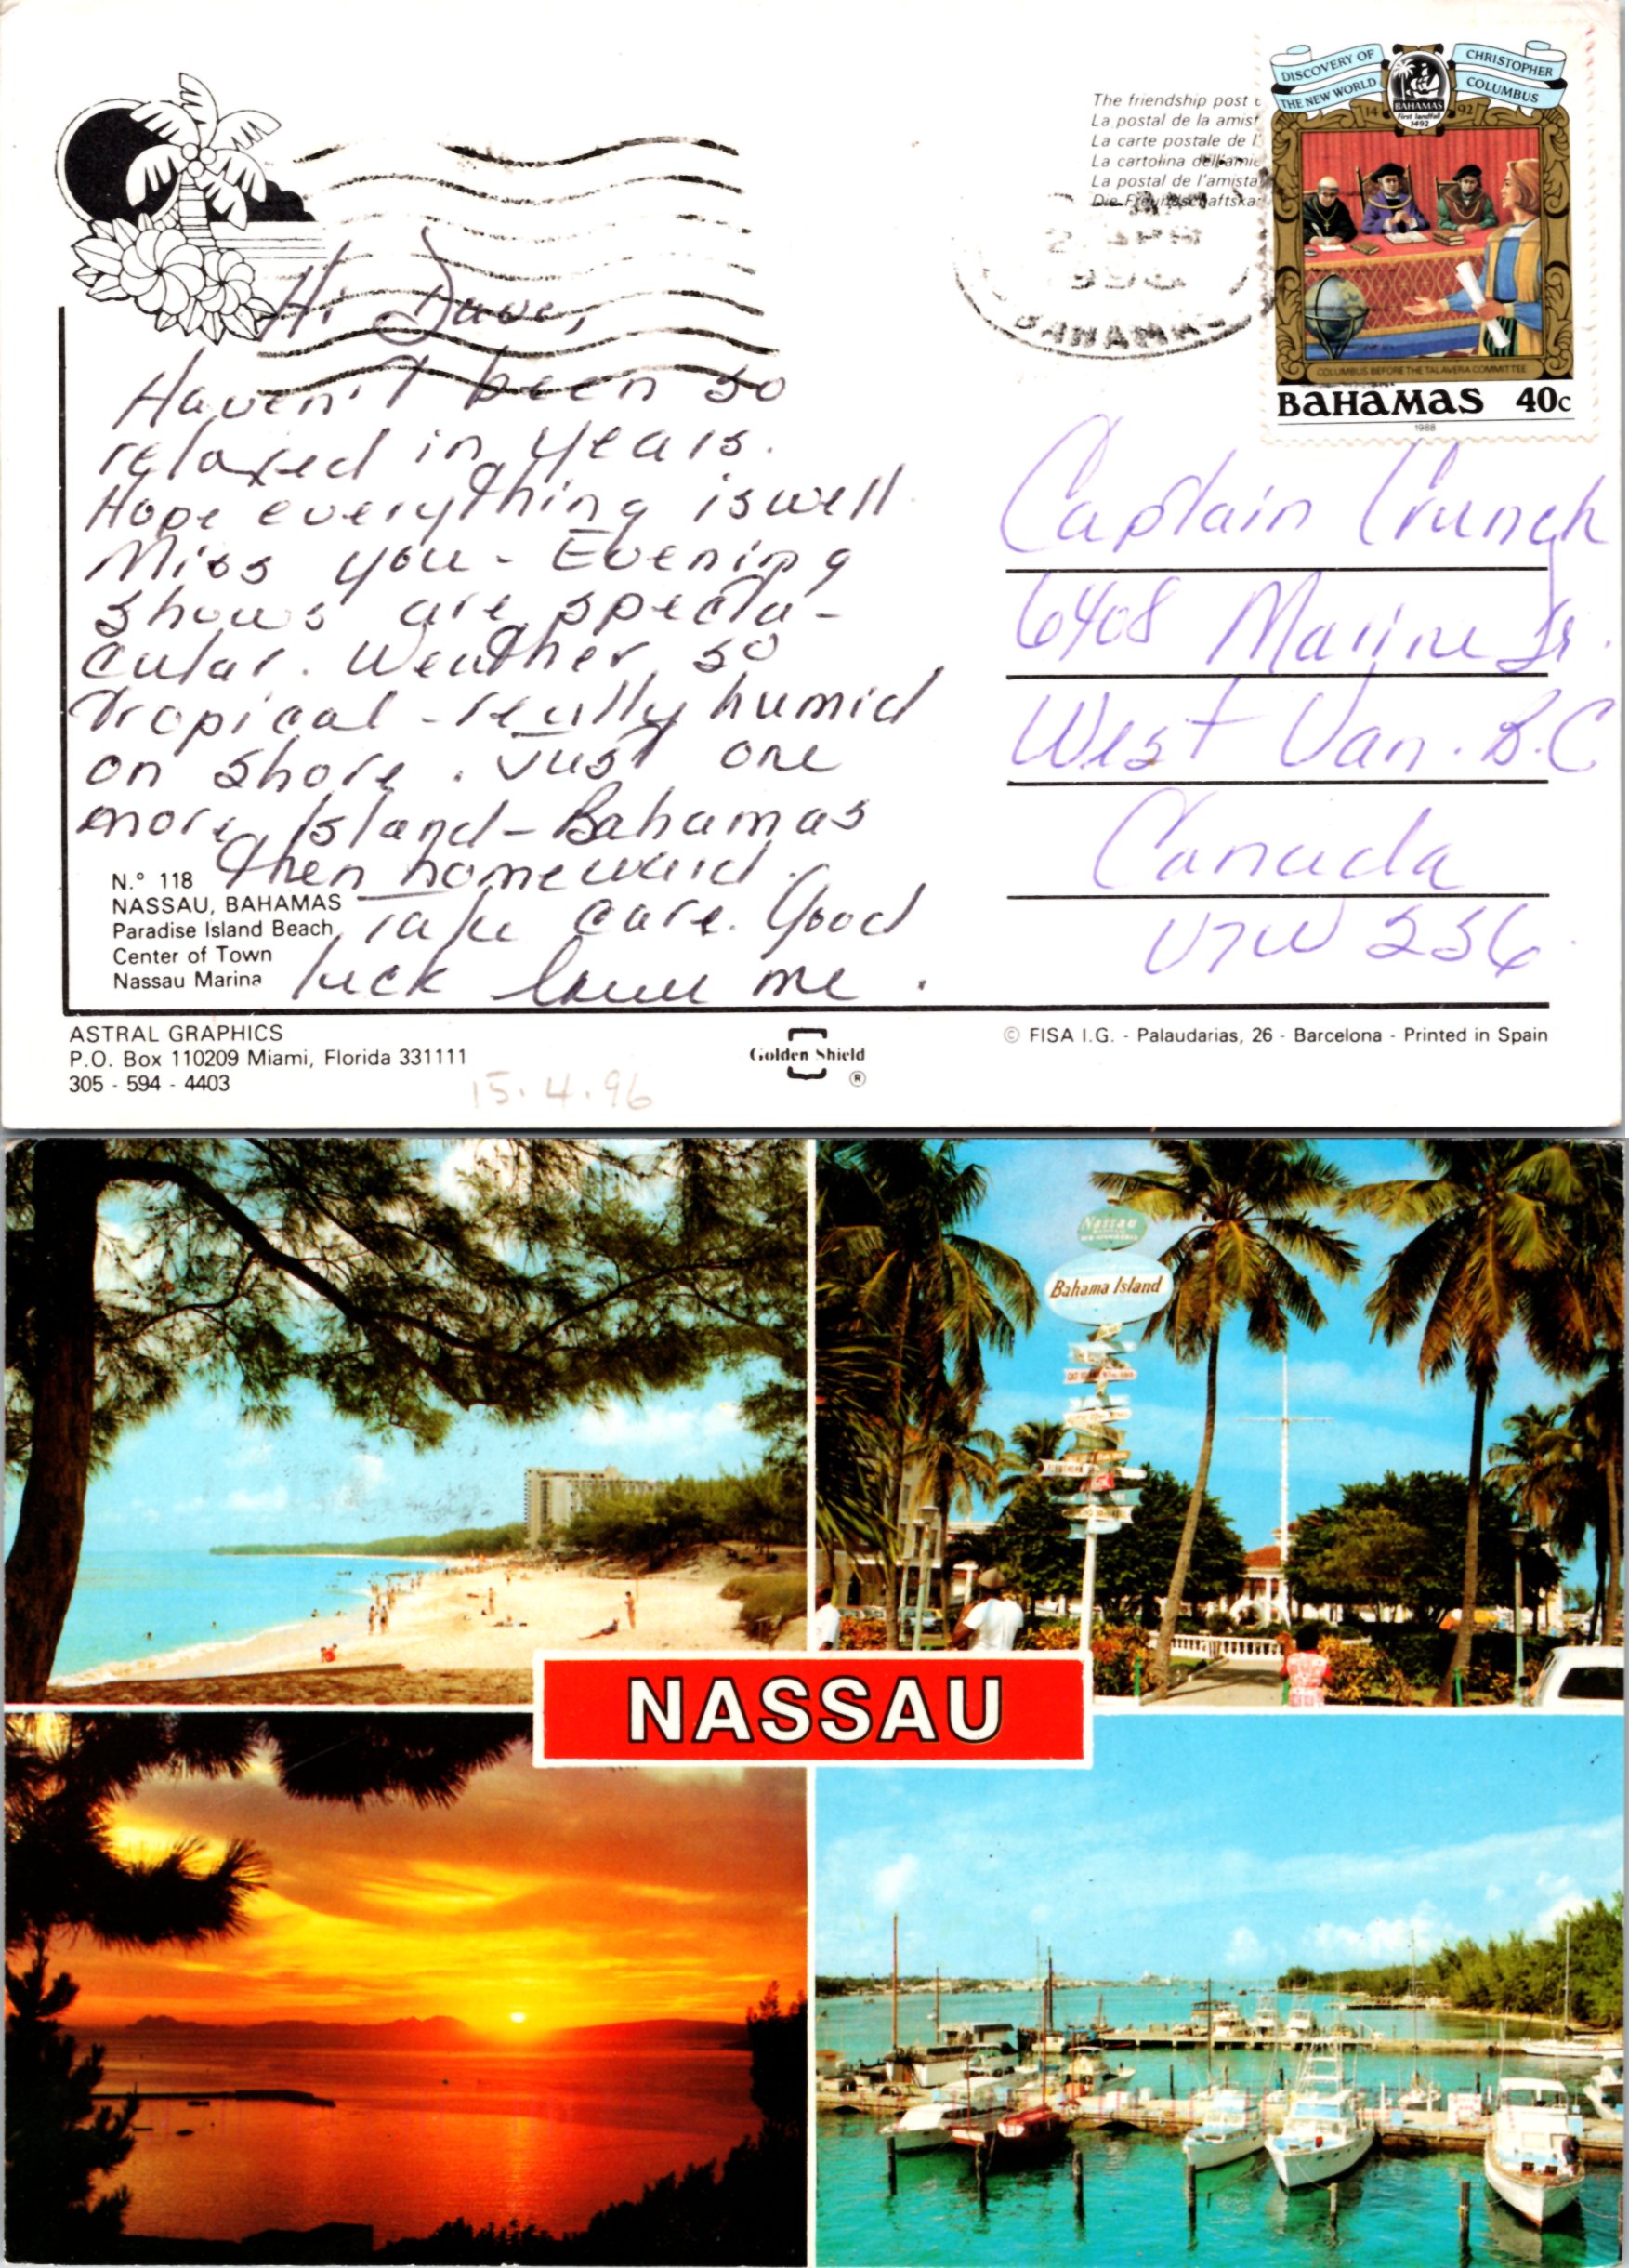 The friendship post
La postal de la amist
La carte postale de l
La cartolina dell'amic
La postal de l'amista
Die Freundschaftska
DISCOVERY OF
THE NEW WORLD
CHRISTOPHER
COLUMBUS
14 92
BAHAMAS
First landfall
1492
COLUMBUS BEFORE THE TALAVERA COMMITTEE
BAHAMAS 40c
1988
BAHAMAS
Hi Dave,
Haven't been so
relaxed in years.
Hope everything is well
Miss you - Evening
shows are specta-
cular. Weather so
tropical - really humid
on shore. Just one
more Island - Bahamas
then homeward.
Take care. Good
luck love me.
Captain Crunch
6408 Marine Dr.
West Van. B.C
Canada
V7W 2S6
N.° 118
NASSAU, BAHAMAS
Paradise Island Beach
Center of Town
Nassau Marina
ASTRAL GRAPHICS
P.O. Box 110209 Miami, Florida 331111
305 - 594 - 4403
15.4.96
Golden Shield
®
© FISA I.G. - Palaudarias, 26 - Barcelona - Printed in Spain
Nassau
Bahama Island
NASSAU